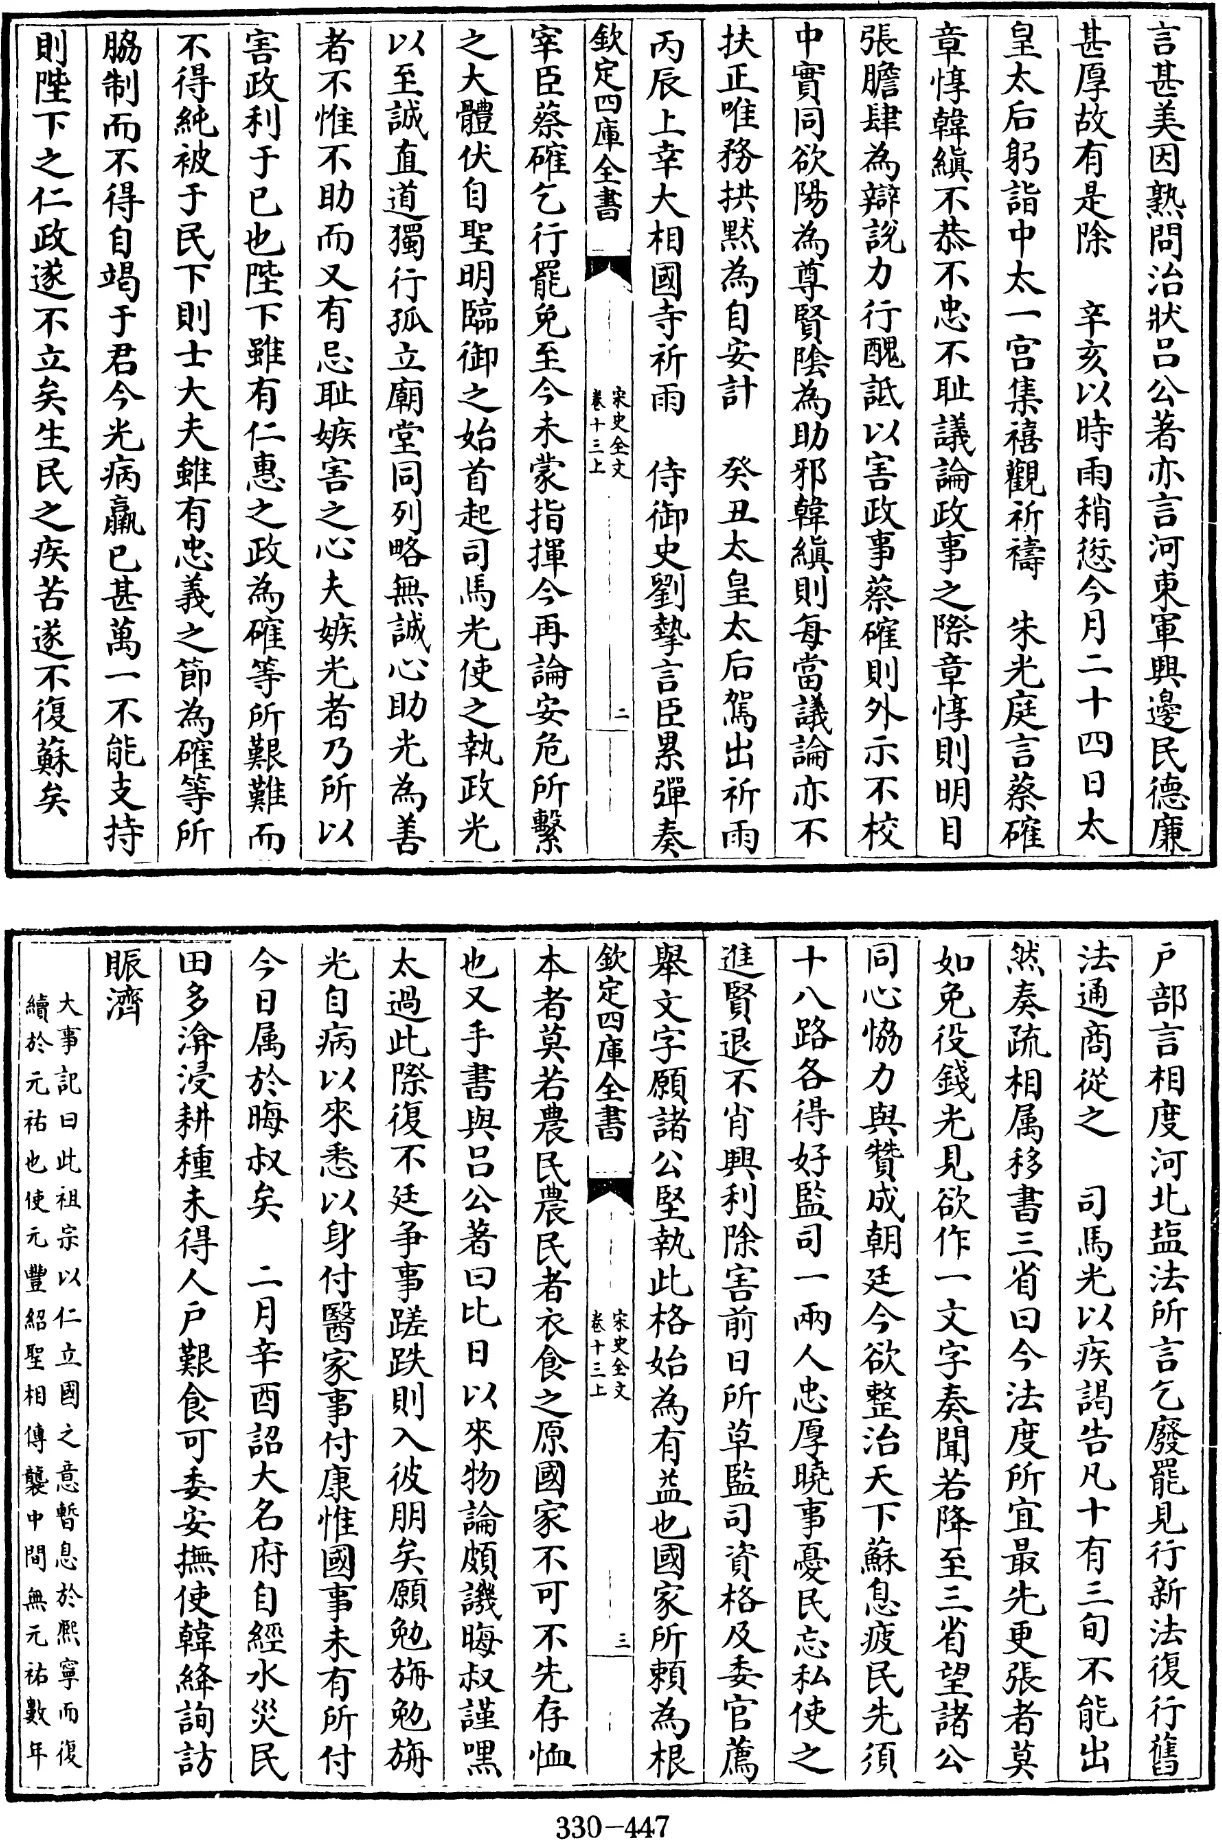 言甚美因熟問治狀呂公著亦言河東軍興邊民德廉
甚厚故有是除　辛亥以時雨稍愆今月二十四日太
皇太后躬詣中太一宮集禧觀祈禱　朱光庭言蔡確
章惇韓縝不恭不忠不耻議論政事之際章惇則明目
張膽肆為辯說力行醜詆以害政事蔡確則外示不校
中實同欲陽為尊賢陰為助邪韓縝則每當議論亦不
扶正唯務拱默為自安計　癸丑太皇太后駕出祈雨
丙辰上幸大相國寺祈雨　侍御史劉摯言臣累彈奏
欽定四庫全書　宋史全文　卷十三上　二
宰臣蔡確乞行罷免至今未蒙指揮今再論安危所繫
之大體伏自聖明臨御之始首起司馬光使之執政光
以至誠直道獨行孤立廟堂同列略無誠心助光為善
者不惟不助而又有忌耻嫉害之心夫嫉光者乃所以
害政利于已也陛下雖有仁惠之政為確等所艱難而
不得純被于民下則士大夫雖有忠義之節為確等所
脇制而不得自竭于君今光病羸已甚萬一不能支持
則陛下之仁政遂不立矣生民之疾苦遂不復蘇矣
戶部言相度河北塩法所言乞廢罷見行新法復行舊
法通商從之　司馬光以疾謁告凡十有三旬不能出
然奏疏相属移書三省曰今法度所宜最先更張者莫
如免役錢光見欲作一文字奏聞若降至三省望諸公
同心恊力與贊成朝廷今欲整治天下蘇息疲民先須
十八路各得好監司一兩人忠厚曉事憂民忘私使之
進賢退不肖興利除害前日所草監司資格及委官薦
舉文字願諸公堅執此格始為有益也國家所賴為根
欽定四庫全書　宋史全文　卷十三上　三
本者莫若農民農民者衣食之原國家不可不先存恤
也又手書與呂公著曰比日以來物論頗譏晦叔謹嘿
太過此際復不廷争事蹉跌則入彼朋矣願勉旃勉旃
光自病以來悉以身付醫家事付康惟國事未有所付
今日属於晦叔矣　二月辛酉詔大名府自經水災民
田多渰浸耕種未得人戶艱食可委安撫使韓絳詢訪
賑濟
大事記曰此祖宗以仁立國之意暫息於熈寧而復
續於元祐也使元豐紹聖相傳襲中間無元祐數年
330-447